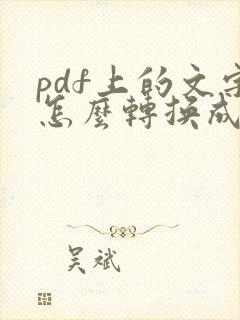 pdf上的文字
怎麼轉換成
吴斌